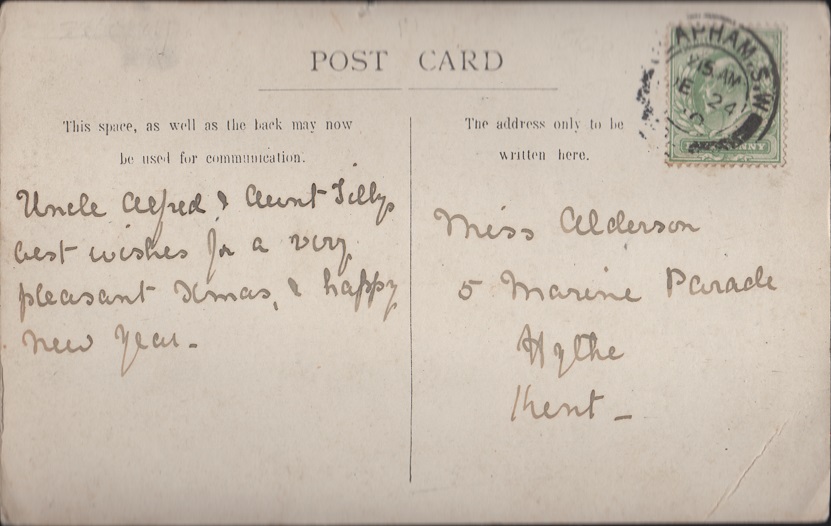 POST CARD
This space, as well as the back may now
be used for communication.
The address only to be
written here.
Uncle Alfred & Aunt Tillys
best wishes for a very
pleasant Xmas, & happy
New Year -
Miss Alderson
5 Marine Parade
Hythe
Kent -
APHAM. S.W.
15 AM
24